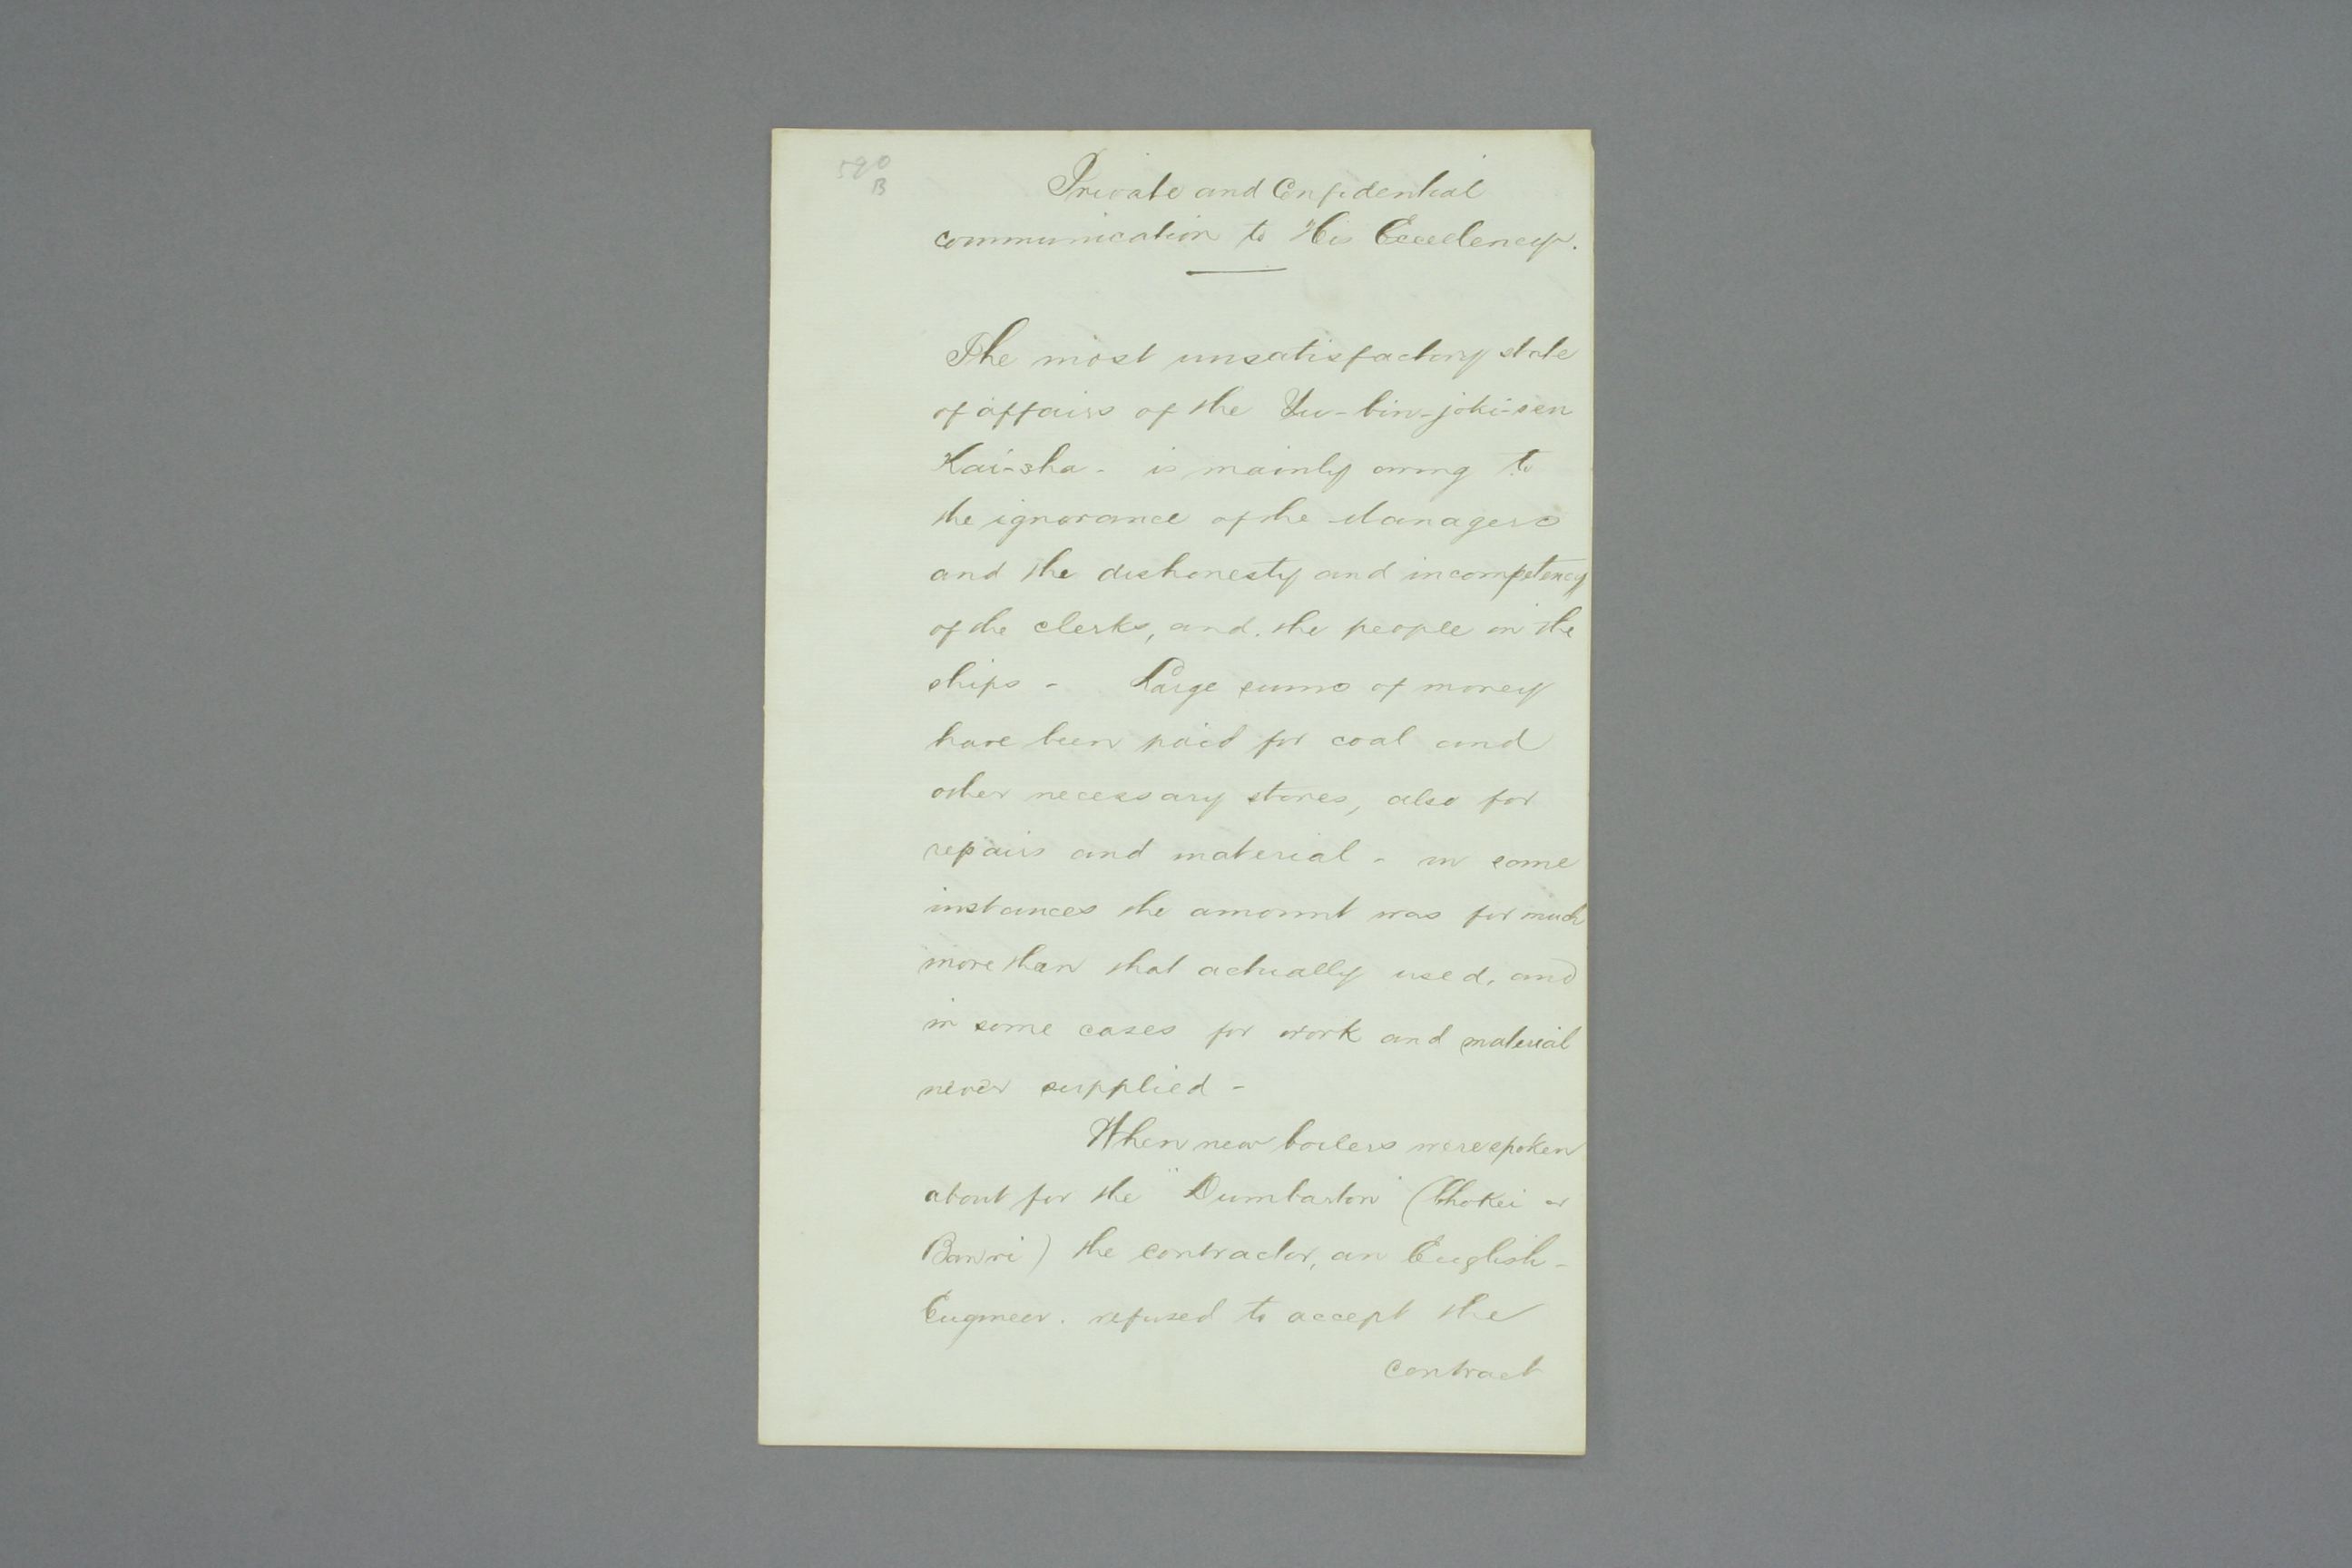 590
B
Private and Confidential
communication to His Excellency.
The most unsatisfactory state
of affairs of the Yu-bin-joki-sen
Kai-sha - is mainly owing to
the ignorance of the Managers
and the dishonesty and incompetency
of the clerks, and the people in the
ships - Large sums of money
have been paid for coal and
other necessary stores, also for
repairs and material - in some
instances the amount was for much
more than that actually used, and
in some cases for work and material
never supplied -
When new boilers were spoken
about for the "Dumbarton" (Chokei or
Banri) the contractor, an English-
Engineer. refused to accept the
contract